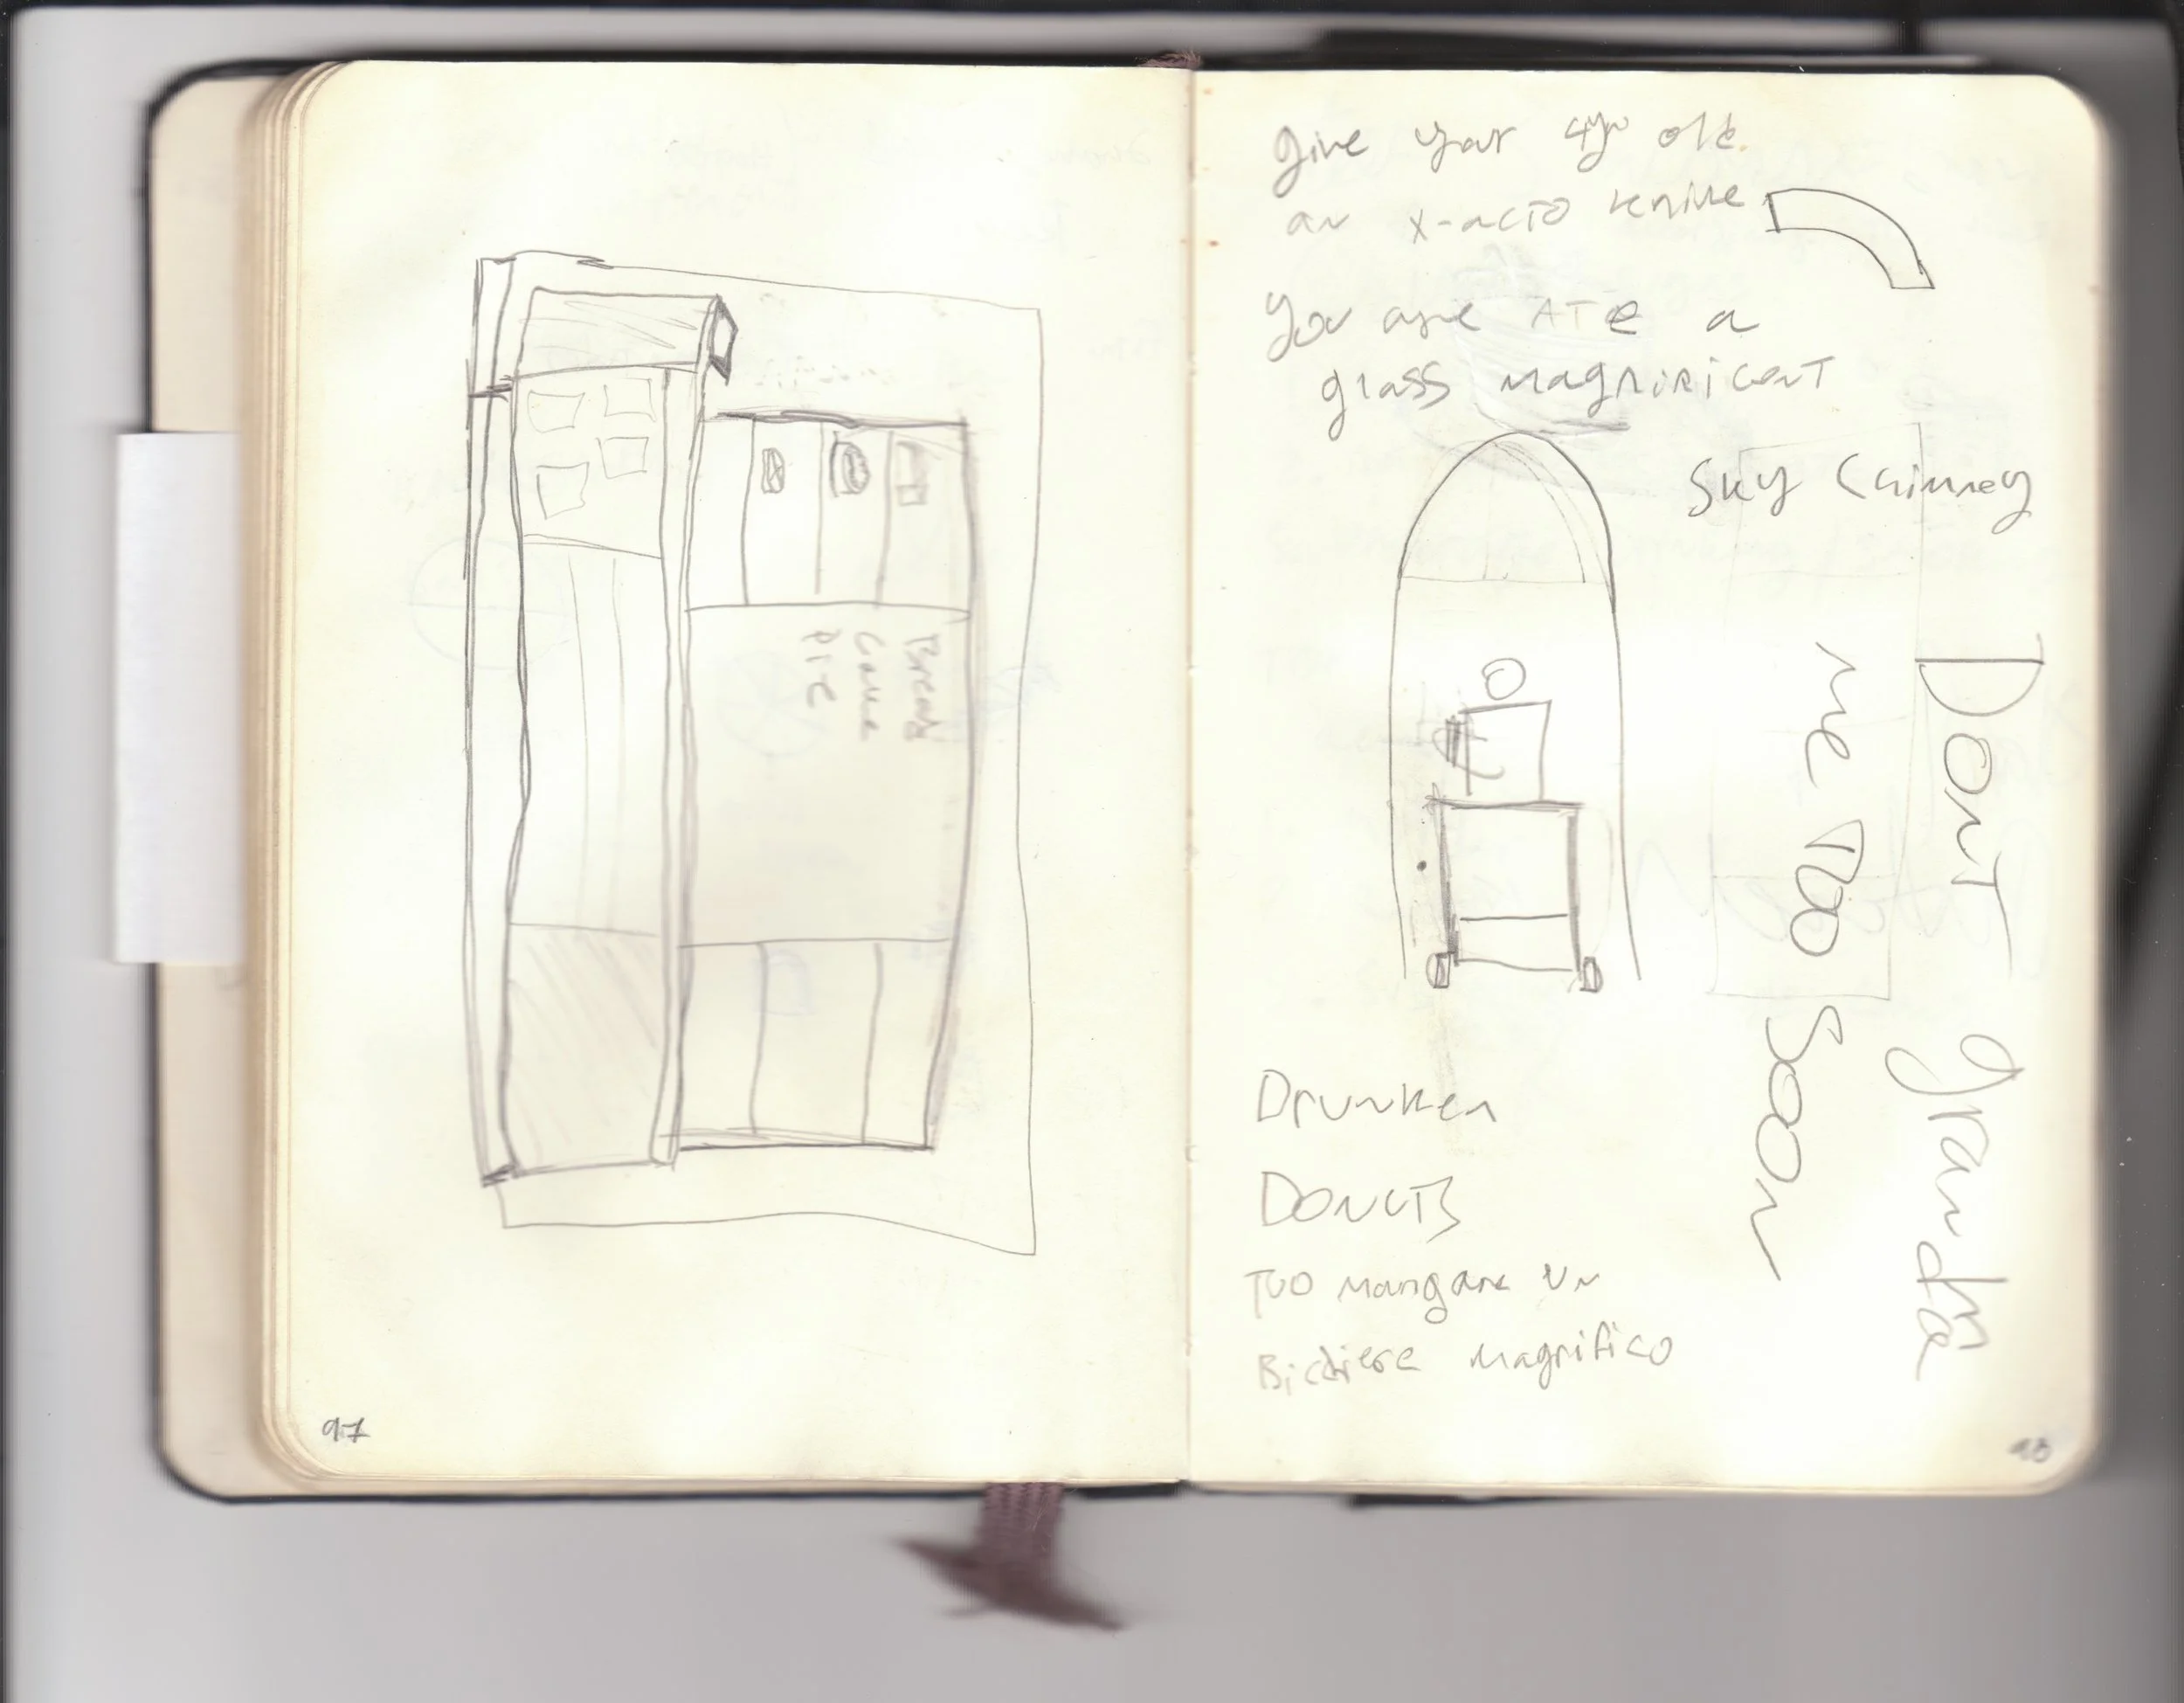 Bread
Cake
Pie
97
give your 4yr old
an x-acto knike
You are ATe a
glass magnificent
Sky Chimney
DonT grandm
me Too Soon
Drunken
DONUTS
TUO mangare un
Bichiere magnifico
98